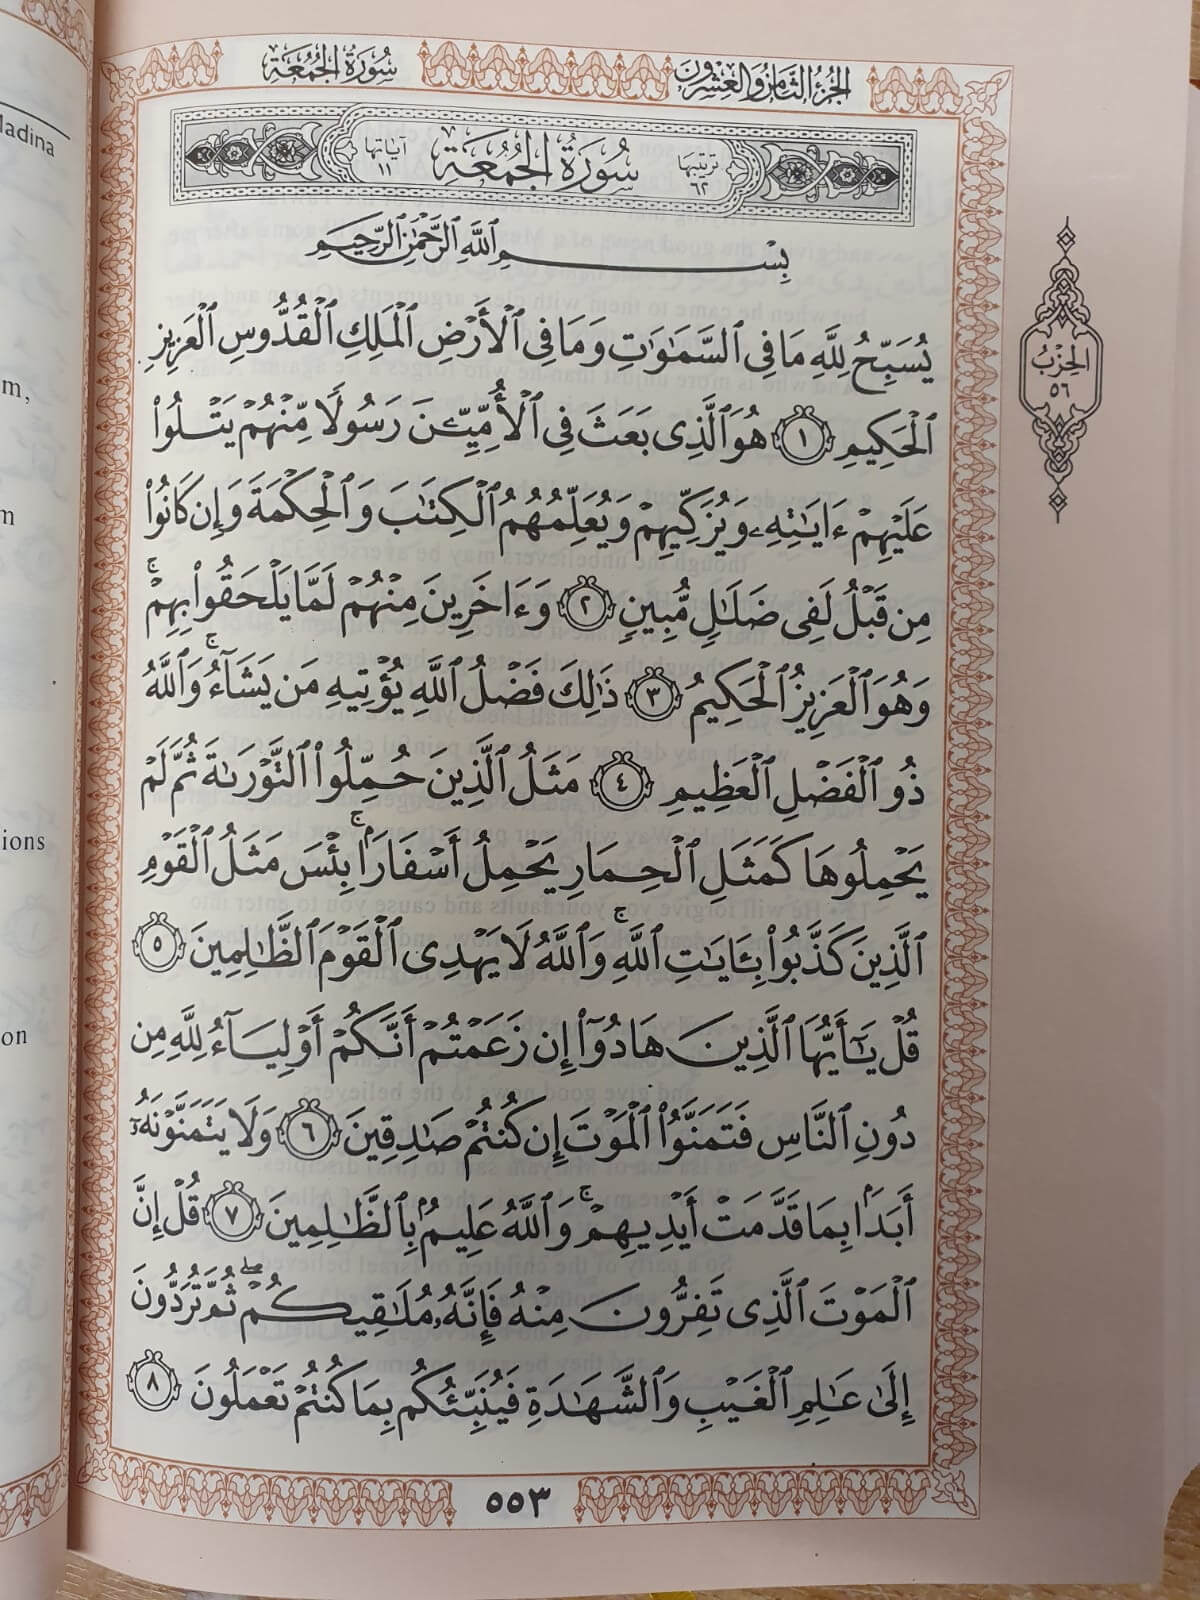 الجزء الثامن والعشرون
سورة الجمعة
ترتيبها ٦٢
سورة الجمعة
آياتها ١١
بِسْمِ ٱللَّهِ ٱلرَّحْمَٰنِ ٱلرَّحِيمِ
يُسَبِّحُ لِلَّهِ مَا فِي ٱلسَّمَٰوَٰتِ وَمَا فِي ٱلْأَرْضِ ٱلْمَلِكِ ٱلْقُدُّوسِ ٱلْعَزِيزِ
ٱلْحَكِيمِ ١ هُوَ ٱلَّذِى بَعَثَ فِي ٱلْأُمِّيِّۦنَ رَسُولًا مِّنْهُمْ يَتْلُوا۟
عَلَيْهِمْ ءَايَٰتِهِۦ وَيُزَكِّيهِمْ وَيُعَلِّمُهُمُ ٱلْكِتَٰبَ وَٱلْحِكْمَةَ وَإِن كَانُوا۟
مِن قَبْلُ لَفِى ضَلَٰلٍ مُّبِينٍ ٢ وَءَاخَرِينَ مِنْهُمْ لَمَّا يَلْحَقُوا۟ بِهِمْۚ
وَهُوَ ٱلْعَزِيزُ ٱلْحَكِيمُ ٣ ذَٰلِكَ فَضْلُ ٱللَّهِ يُؤْتِيهِ مَن يَشَآءُۚ وَٱللَّهُ
ذُو ٱلْفَضْلِ ٱلْعَظِيمِ ٤ مَثَلُ ٱلَّذِينَ حُمِّلُوا۟ ٱلتَّوْرَىٰةَ ثُمَّ لَمْ
يَحْمِلُوهَا كَمَثَلِ ٱلْحِمَارِ يَحْمِلُ أَسْفَارًۢاۚ بِئْسَ مَثَلُ ٱلْقَوْمِ
ٱلَّذِينَ كَذَّبُوا۟ بِـَٔايَٰتِ ٱللَّهِۚ وَٱللَّهُ لَا يَهْدِى ٱلْقَوْمَ ٱلظَّٰلِمِينَ ٥
قُلْ يَٰٓأَيُّهَا ٱلَّذِينَ هَادُوٓا۟ إِن زَعَمْتُمْ أَنَّكُمْ أَوْلِيَآءُ لِلَّهِ مِن
دُونِ ٱلنَّاسِ فَتَمَنَّوُا۟ ٱلْمَوْتَ إِن كُنتُمْ صَٰدِقِينَ ٦ وَلَا يَتَمَنَّوْنَهُۥٓ
أَبَدًۢا بِمَا قَدَّمَتْ أَيْدِيهِمْۚ وَٱللَّهُ عَلِيمٌۢ بِٱلظَّٰلِمِينَ ٧ قُلْ إِنَّ
ٱلْمَوْتَ ٱلَّذِى تَفِرُّونَ مِنْهُ فَإِنَّهُۥ مُلَٰقِيكُمْۖ ثُمَّ تُرَدُّونَ
إِلَىٰ عَٰلِمِ ٱلْغَيْبِ وَٱلشَّهَٰدَةِ فَيُنَبِّئُكُم بِمَا كُنتُمْ تَعْمَلُونَ ٨
٥٥٣
الحزب
٥٦